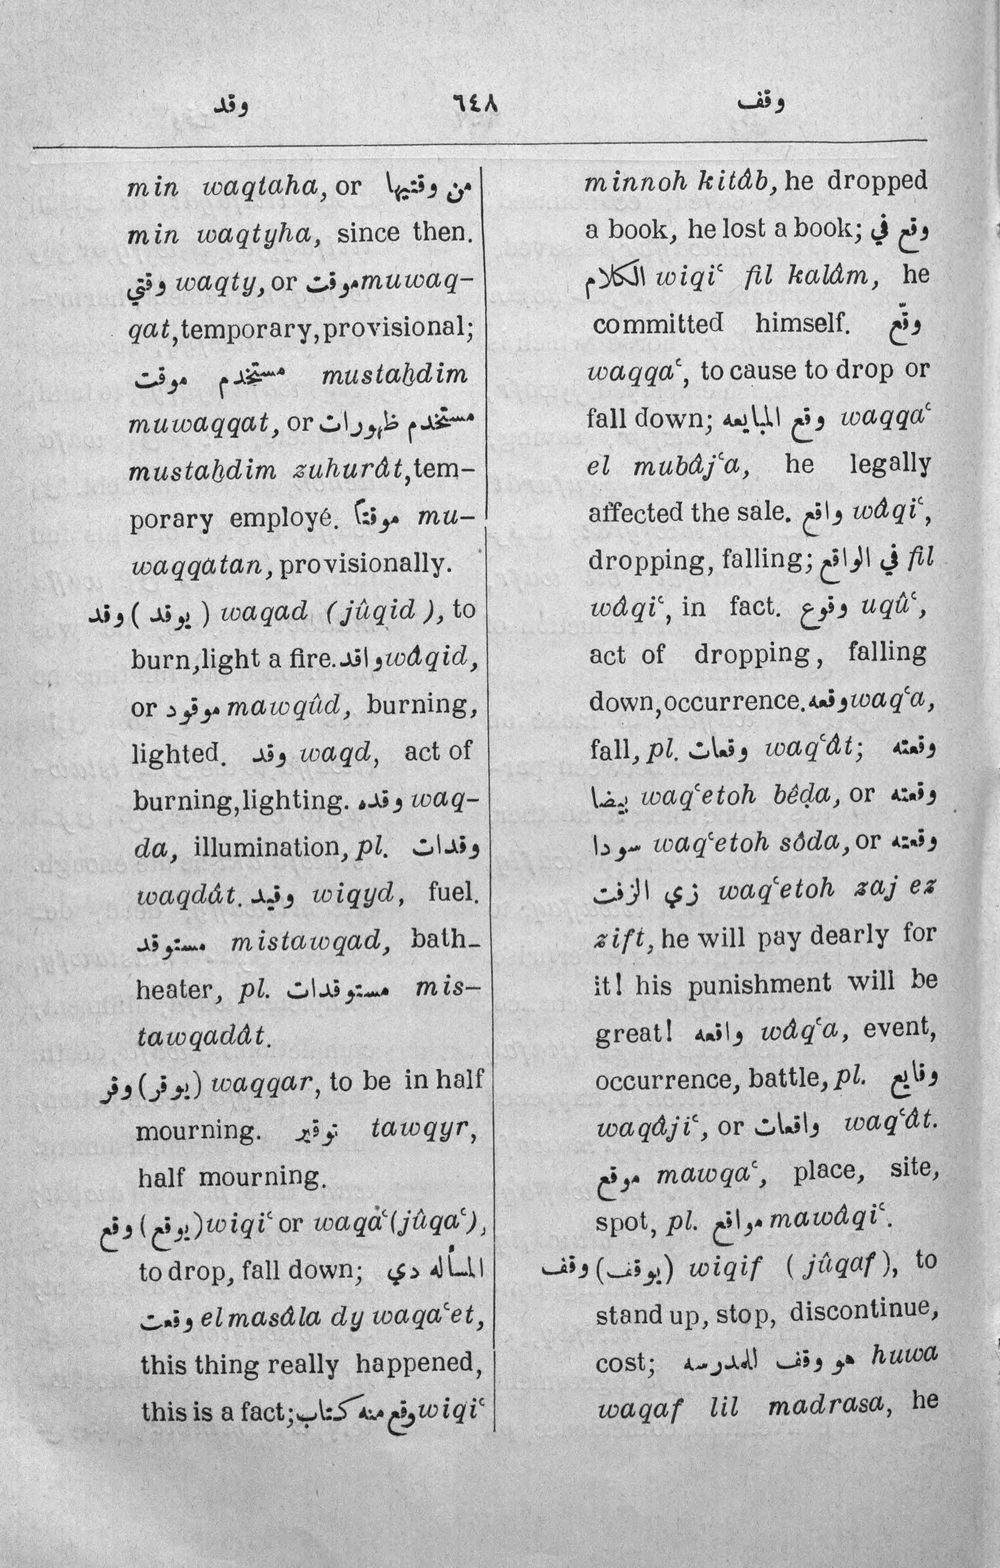 وقد ٦٤٨ وقف
min waqtaha, or من وقتيها
min waqtyha, since then.
وقتي waqty, or موقت muwaq-
qat, temporary, provisional;
مستخدم موقت mustaḫdim
muwaqqat, or مستخدم ظهورات
mustaḫdim zuhurât, tem-
porary employé. موقتاً mu-
waqqatan, provisionally.
وقد ( يوقد ) waqad (jûqid ), to
burn, light a fire. واقد wâqid,
or موقود mawqûd, burning,
lighted. وقد waqd, act of
burning, lighting. وقده waq-
da, illumination, pl. وقدات
waqdât. وقيد wiqyd, fuel.
مستوقد mistawqad, bath-
heater, pl. مستوقدات mis-
tawqadât.
وقر (يوقر) waqqar, to be in half
mourning. توقير tawqyr,
half mourning.
وقع (يوقع) wiqiʿ or waqaʿ (jûqaʿ),
to drop, fall down; المسأله دي
وقعت el masâla dy waqaʿet,
this thing really happened,
this is a fact; وقع منه كتاب wiqiʿ
minnoh kitâb, he dropped
a book, he lost a book; وقع في
الكلام wiqiʿ fil kalâm, he
committed himself. وقّع
waqqaʿ, to cause to drop or
fall down; وقع المبايعه waqqaʿ
el mubâjʿa, he legally
affected the sale. واقع wâqiʿ,
dropping, falling; في الواقع fil
wâqiʿ, in fact. وقوع uqûʿ,
act of dropping, falling
down, occurrence. وقعه waqʿa,
fall, pl. وقعات waqʿât; وقعته
بيضا waqʿetoh bêḍa, or وقعته
سودا waqʿetoh sôda, or وقعته
زي الزفت waqʿetoh zaj ez
zift, he will pay dearly for
it! his punishment will be
great! واقعه wâqʿa, event,
occurrence, battle, pl. وقايع
waqâjiʿ, or واقعات waqʿât.
موقع mawqaʿ, place, site,
spot, pl. مواقع mawâqiʿ.
وقف (يوقف) wiqif ( jûqaf ), to
stand up, stop, discontinue,
cost; هو وقف للمدرسه huwa
waqaf lil madrasa, he